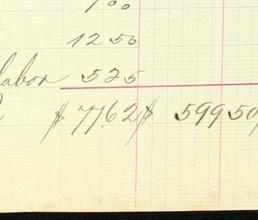 12 50
labor 5 25
$ 77.62 $ 599 50